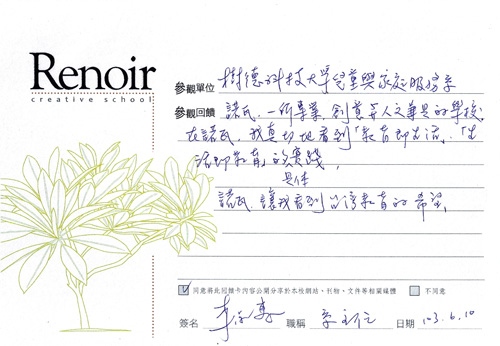 Renoir
creative school
參觀單位 樹德科技大學兒童與家庭服務系
參觀回饋 諾瓦,一所專業、創意與人文兼具的學校
在諾瓦,我真切地看到「教育即生活」、「生
活即教育」的實踐,
具体
諾瓦,讓我看到台灣教育的希望。
同意將此回饋卡內容公開分享於本校網站、刊物、文件等相關媒體 不同意
簽名 職稱 系主任 日期 103.6.10